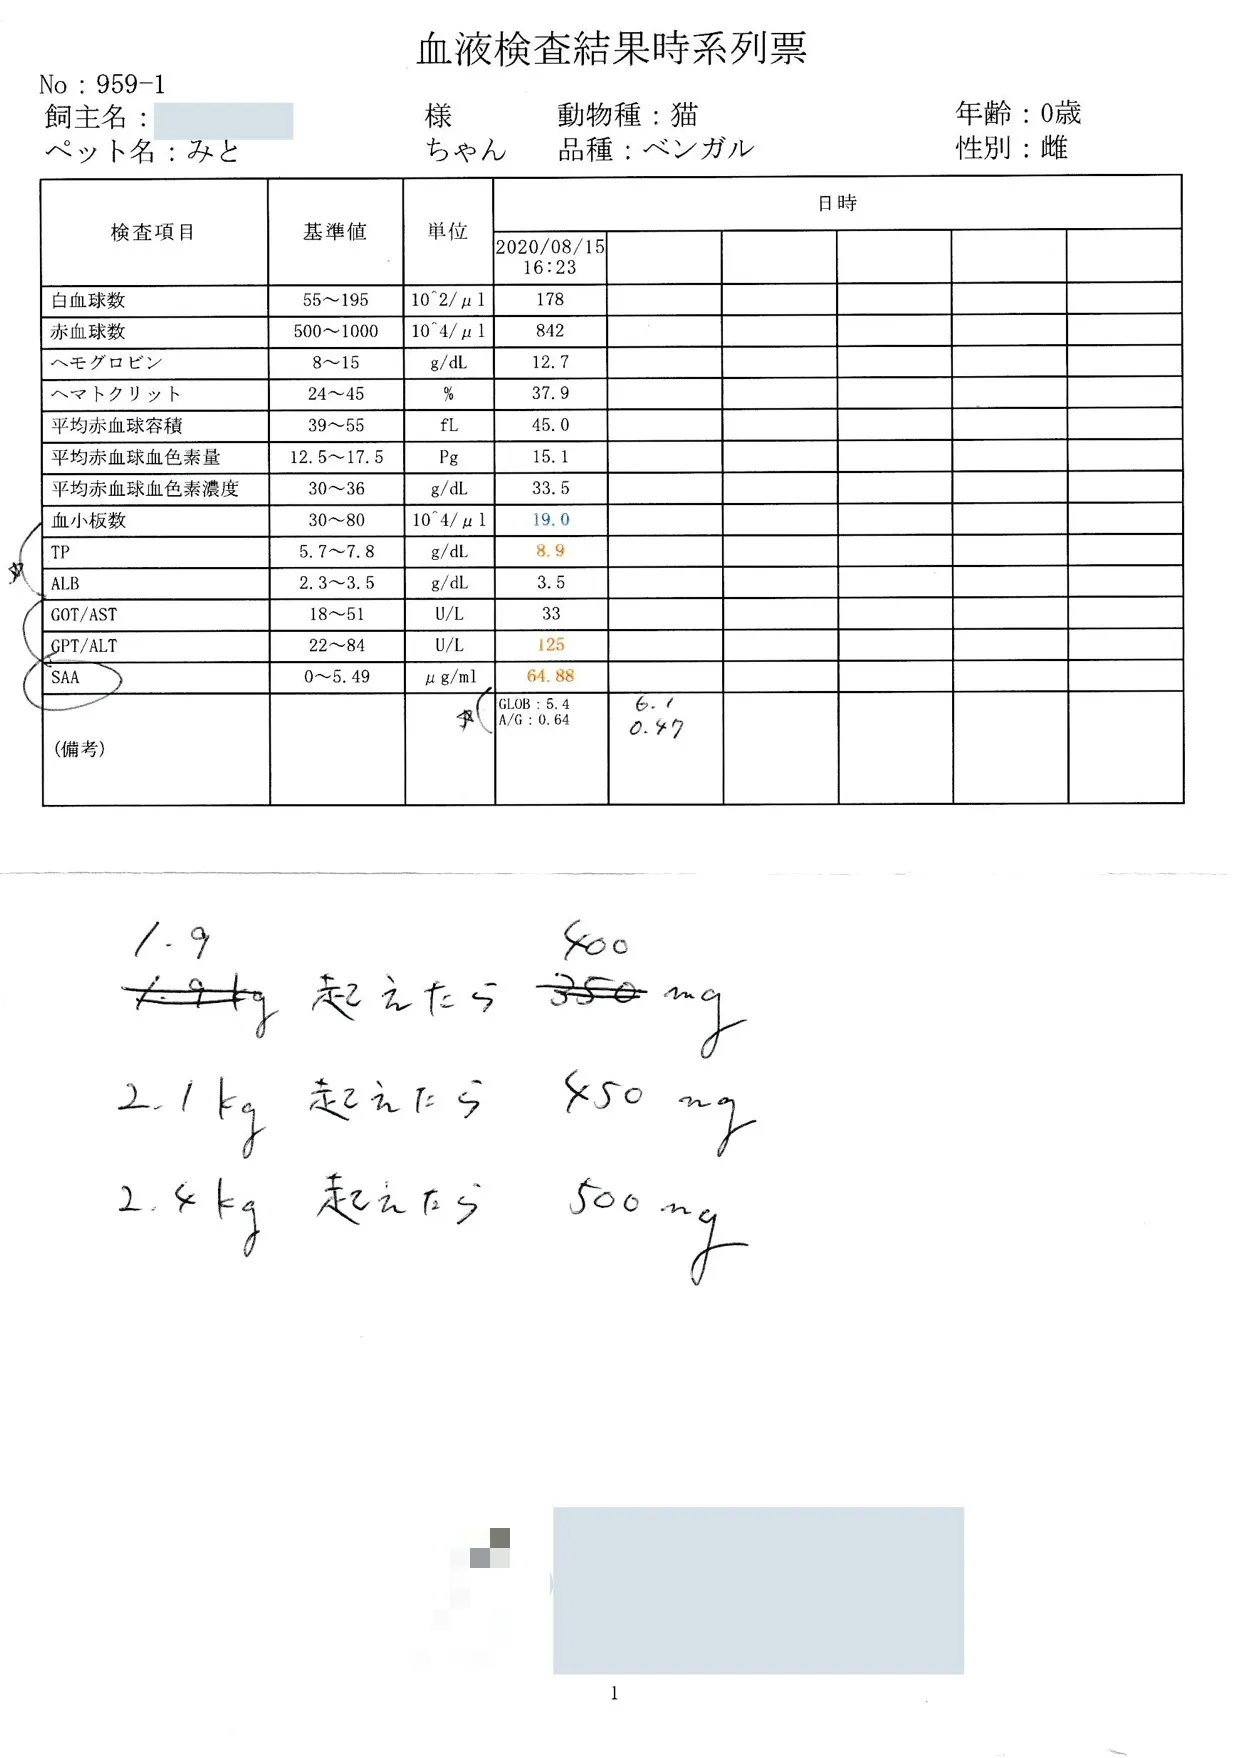 血液検査結果時系列票
No：959-1
飼主名： 様 動物種：猫 年齢：0歳
ペット名：みと ちゃん 品種：ベンガル 性別：雌
検査項目 基準値 単位 日時
2020/08/15
16:23
白血球数 55～195 10^2/μl 178
赤血球数 500～1000 10^4/μl 842
ヘモグロビン 8～15 g/dL 12.7
ヘマトクリット 24～45 % 37.9
平均赤血球容積 39～55 fL 45.0
平均赤血球血色素量 12.5～17.5 Pg 15.1
平均赤血球血色素濃度 30～36 g/dL 33.5
血小板数 30～80 10^4/μl 19.0
TP 5.7～7.8 g/dL 8.9
ALB 2.3～3.5 g/dL 3.5
GOT/AST 18～51 U/L 33
GPT/ALT 22～84 U/L 125
SAA 0～5.49 μg/ml 64.88
(備考) GLOB：5.4 6.1
A/G：0.64 0.47
1.9 400
1.9kg 起えたら 350 mg
2.1kg 起えたら 450 mg
2.4kg 起えたら 500 mg
1